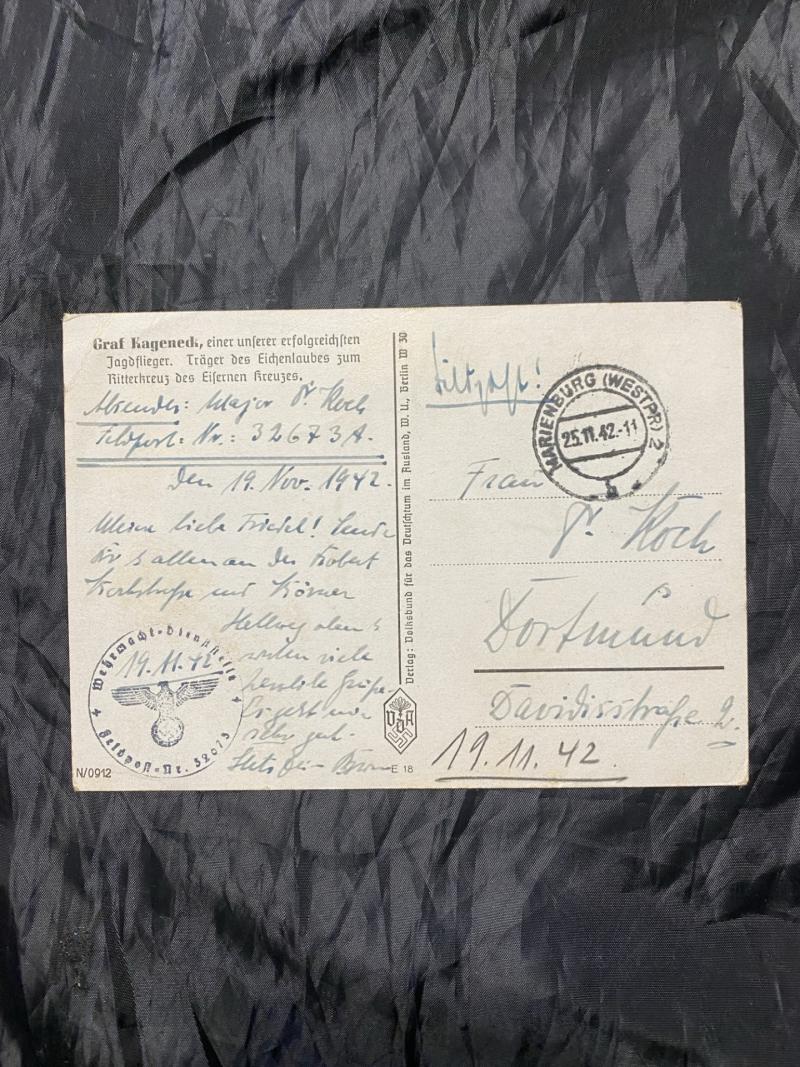 Graf Kageneck, einer unserer erfolgreichsten
Jagdflieger. Träger des Eichenlaubes zum
Ritterkreuz des Eisernen Kreuzes.
Absender: Major Dr. Koch
Feldpost: Nr.: 32673A.
Den 19. Nov. 1942.
Meine liebe Friedel! Sende
Dir & allen an der Robert
Kochstraße und Körner
Hellweg oben &
unten viele
herzliche Grüße.
Es geht mir
sehr gut.
Stets Dein
Wehrmacht-Dienststelle
19.11.42
Feldpost-Nr.
N/0912
E 18
Verlag: Volksbund für das Deutschtum im Ausland, W. U., Berlin W 30
VDA
Feldpost!
MARIENBURG (WESTPR) 2
25.11.42.-11
Frau
Dr. Koch
Dortmund
Davidisstraße 2.
19.11.42.